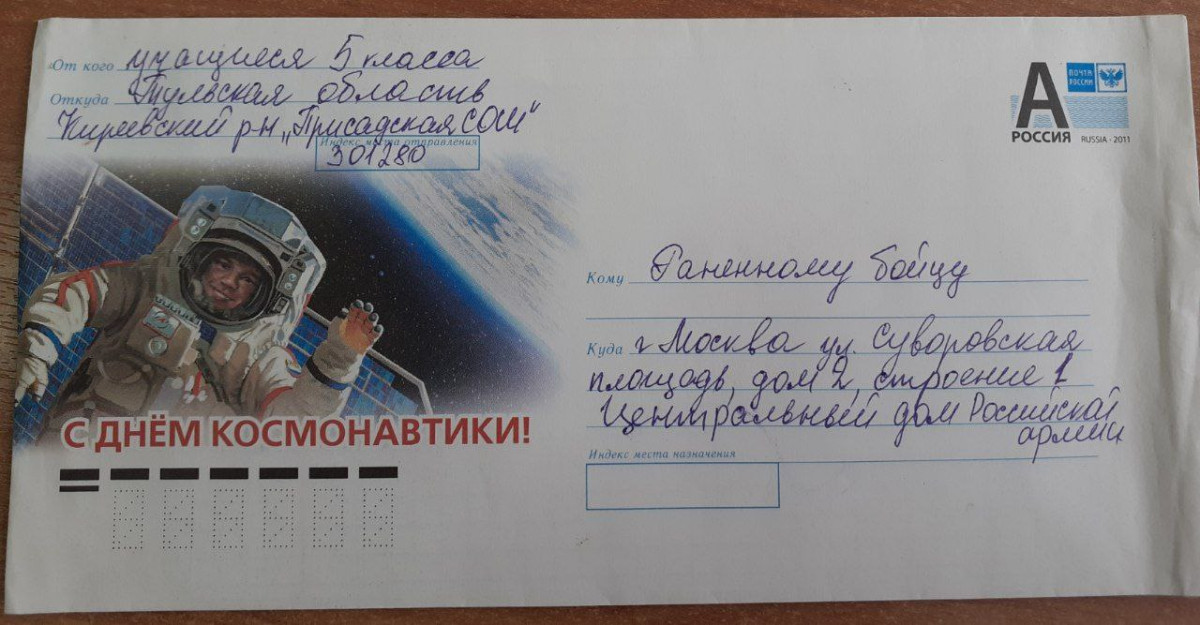 От кого учащиеся 5 класса
Откуда Тульская область
Киреевский р-н „Присадская СОШ"
Индекс места отправления
301280
А
ПОЧТА РОССИИ
РОССИЯ
RUSSIA · 2011
Кому Раненному бойцу
Куда г Москва ул. Суворовская
площадь, дом 2, строение 1
Центральный дом Российской
армии
Индекс места назначения
С ДНЁМ КОСМОНАВТИКИ!